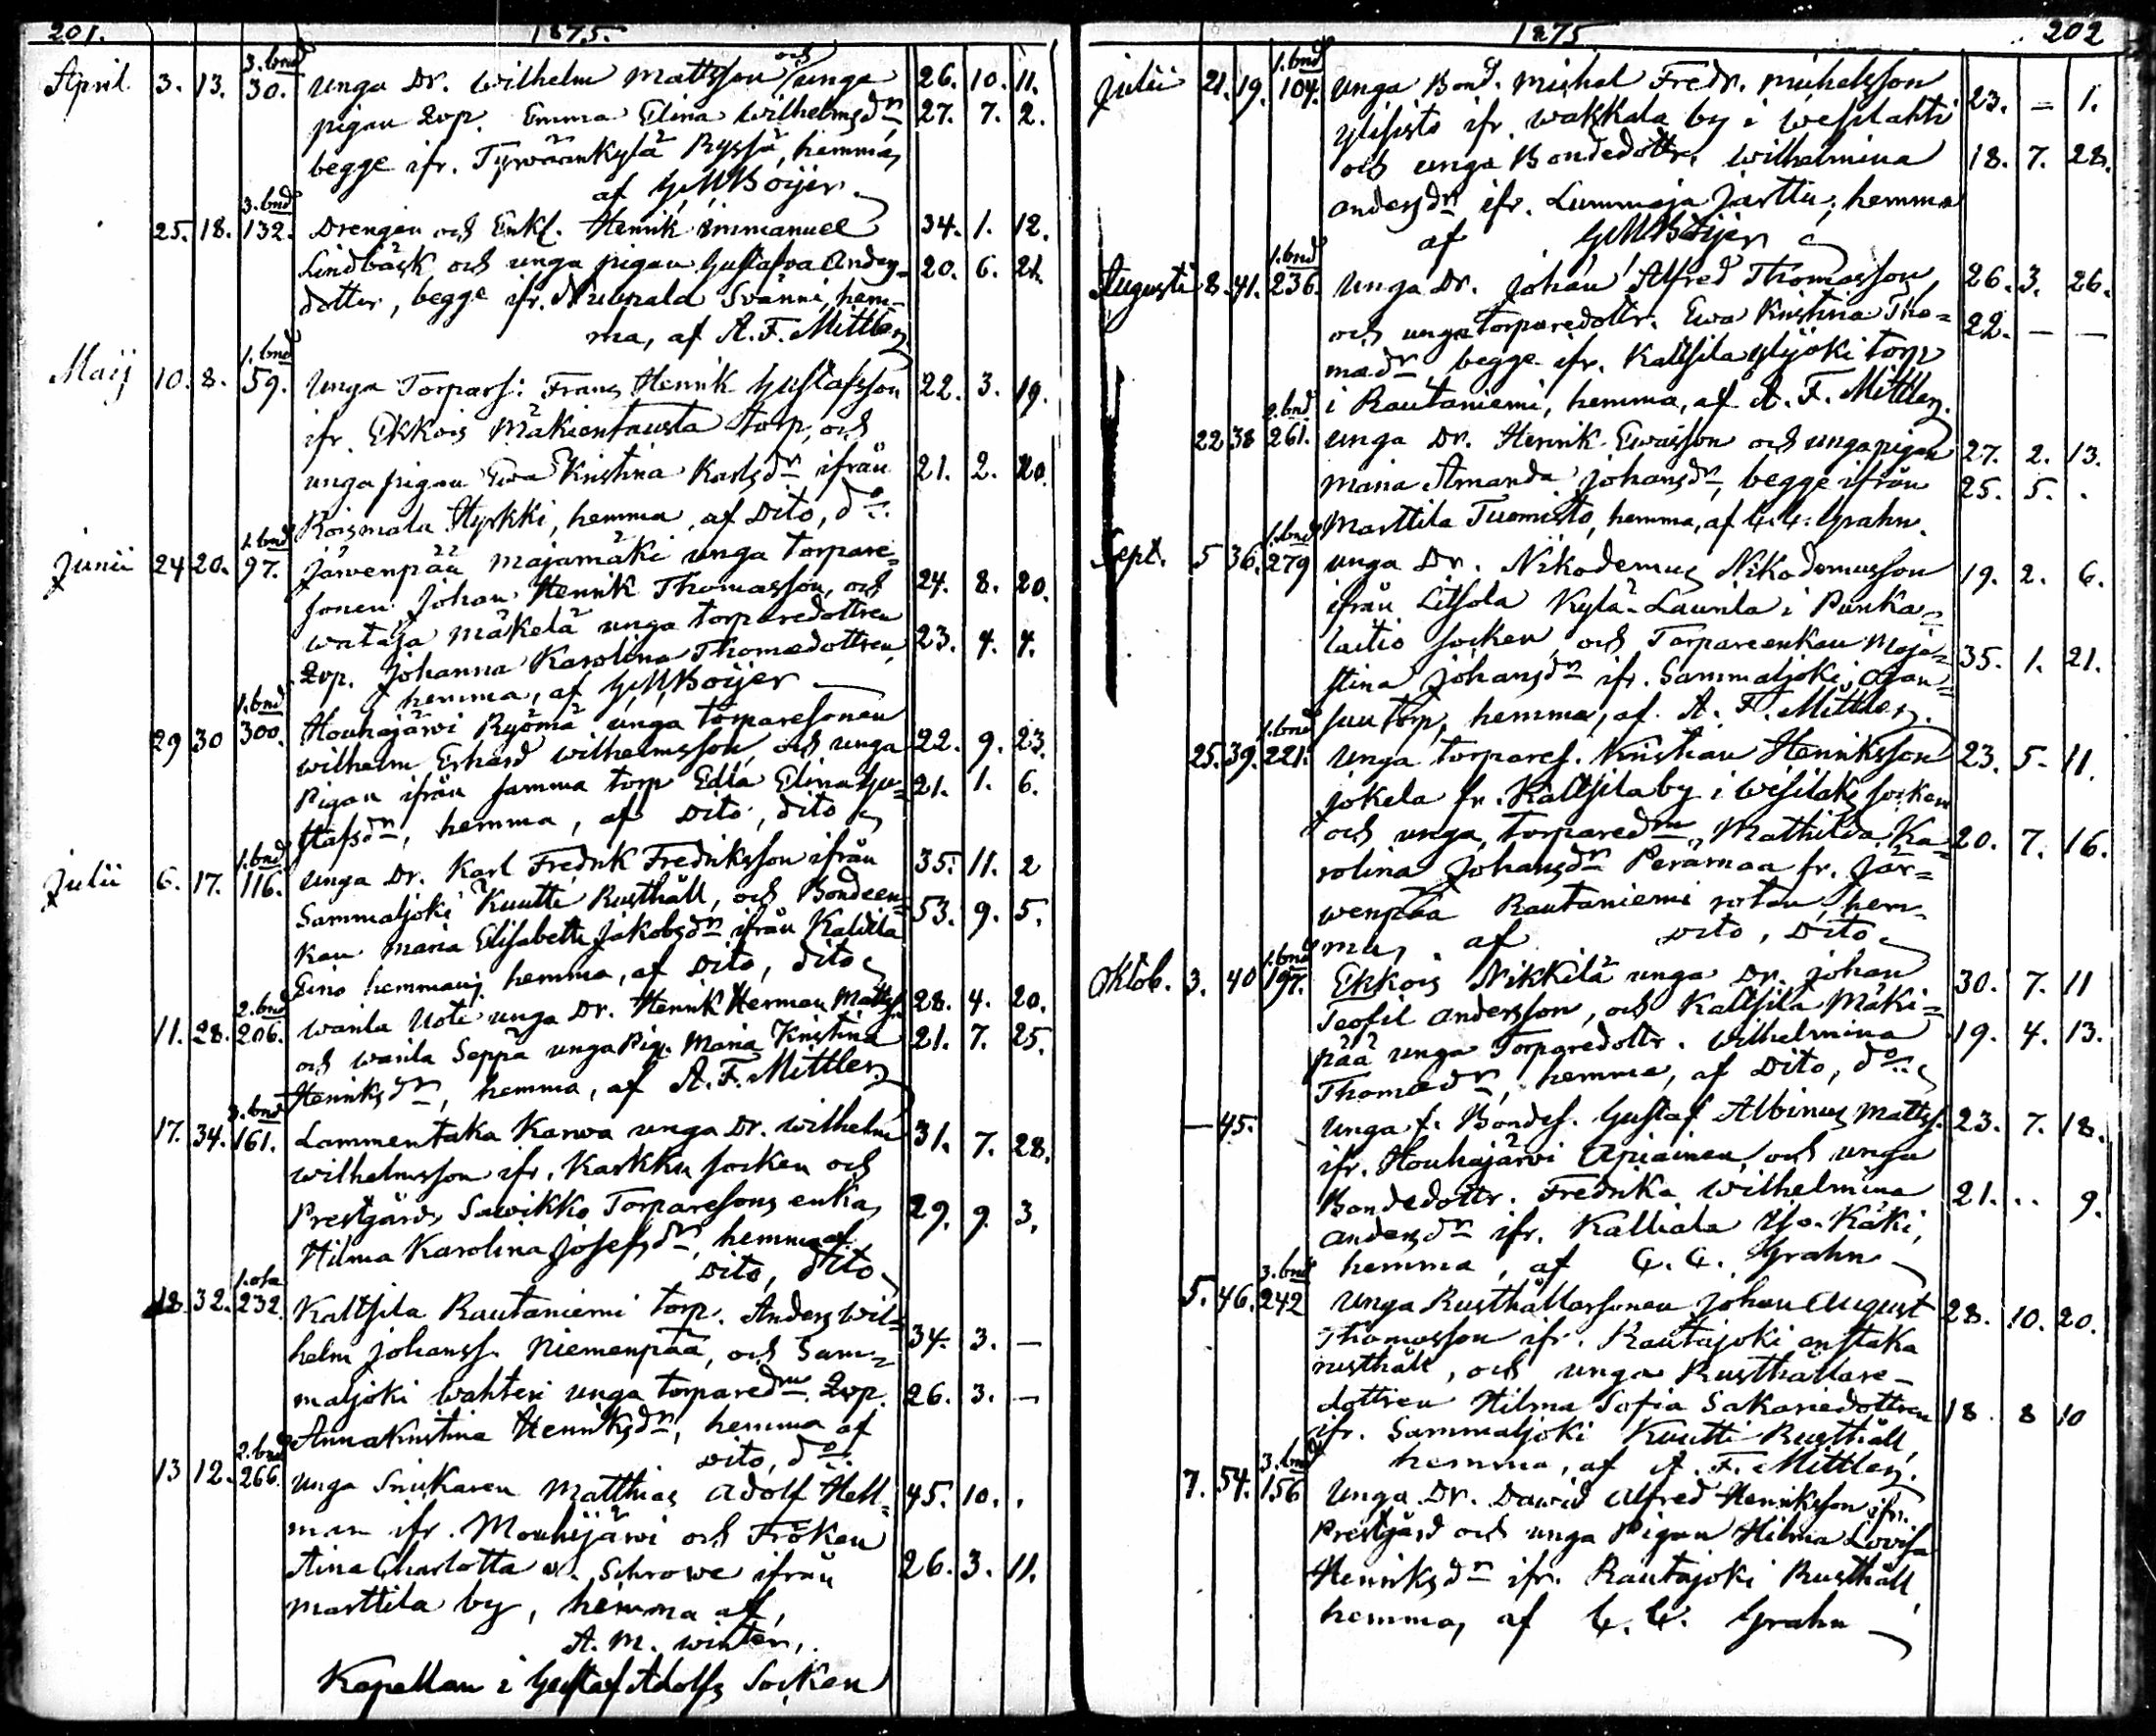 201. 1875.
3. bnd
April. 3. 13. 30. unga Dr. Wilhelm Mattsson och unga 26. 10. 11.
pigan Qvp. Emma Elina Wilhelmsdr 27. 7. 2.
begge ifr. Tyrwäänkylä Ryssä, hemma,
af G M Boijer.
3. bnd
25. 18. 132. Drengen och Enkl. Henrik Emmanuel 34. 1. 12.
Lindbäck och unga pigan Gustafva Anders= 20. 6. 21.
dotter, begge ifr. Svänni, hem=
ma, af A. F. Mittler
1. bnd
Maij 10. 8. 59. Unga Torpars: Frans Henrik Gustafsson 22. 3. 19.
ifr. Ekkois Mäkientausta torp, och
unga pigan Ewa Kristina Karlsdr ifrån 21. 2. 20.
Roismala Hyrkki, hemma, af Dito, do.
1. bnd
Junii 24 20. 97. Järwenpää Majamäki unga torpare=
sonen Johan Henrik Thomasson, och 24. 8. 20.
Wataja Mäkelä unga torparedottren
Qvp. Johanna Karolina Thomædottren, 23. 4. 4.
hemma, af G M Boijer
1. bnd
29 30 300. Houhajärwi Ryömä unga torparesonen
Wilhelm Erhard Wilhelmsson, och unga 22. 9. 23.
Pigan ifrån samma torp Edla Elina Gu= 21. 1. 6.
stafsdr, hemma, af Dito, dito
1. bnd
Julii 6. 17. 116. Unga Dr. Karl Fredrik Fredriksson ifrån 35. 11. 2
Sammaljoki Kuutti Rusthåll, och Bondeen= 53. 9. 5.
kan Maria Elisabeth Jakobsdr ifrån Kaltila
Eino hemman, hemma, af Dito, dito
2. bnd
11. 28. 206. Warila Uoti unga Dr. Henrik Herman Mattss. 28. 4. 20.
och Warila Seppä unga Pig. Maria Kristina 21. 7. 25.
Henriksdr, hemma, af A. F. Mittler
3. bnd
17. 34. 161. Lammentaka Karwa unga Dr. Wilhelm 31. 7. 28.
Wilhelmsson ifr. Karkku socken och
Prestgårds Sawikko Torparesons enka 29. 9. 3.
Hilma Karolina Josefsdr, hemma af
Dito, dito
18. 32. 232. Kaltsila Rautaniemi torp. Anders Wil=
helm Johanss. Niemenpää, och Sam= 34. 3. —
maljoki Wahteri unga torparedr Qvp. 26. 3. —
Anna Kristina Henriksdr, hemma af
Dito, do.
2. bnd
13 12. 266. Unga Snickaren Matthias Adolf Hell= 45. 10. .
man ifr. Mouhijärwi och Fröken
Aina Charlotta v. Schrowe ifrån 26. 3. 11.
Marttila by, hemma af,
A. M. Winter,
Kapellan i Gustaf Adolfs Socken
1875 202
1. bnd
Julii 21. 19. 104. Unga Bond. Michel Fredr. Michelsson 23. — 1.
Ylisisto ifr. Wakkala by i Wesilahti
och unga Bondedottr. Wilhelmina 18. 7. 28.
Andersdr ifr. Lummaja Jarttu, hemma
af G M Boijer
1. bnd
Augusti 8. 41. 236. Unga Dr. Johan Alfred Thomasson, 26. 3. 26.
och unga torparedottr. Ewa Kristina Tho= 22. — —
mædr, begge ifr. Kaltsila Ylijoki torp
i Rautaniemi, hemma, af A. F. Mittler.
2. bnd
22 38 261. Unga Dr. Henrik Ewasson och unga pigan 27. 2. 13.
Maria Amanda Johansdr, begge ifrån 25. 5. .
Marttila Tuomisto, hemma, af C. C. Grahn.
1. bnd
Sept. 5 36. 279 unga Dr. Nikodemus Nikodemusson 19. 2. 6.
ifrån Litsola Kylä-Laurila i Punka=
laitio socken, och Torpareenkan Maja= 35. 1. 21.
stina Johansdr ifr. Sammaljoki, Ojan=
suu torp, hemma, af A. F. Mittler.
1. bnd
25. 39. 221. Unga torpares. Kristian Henriksson 23. 5 11.
Jokela fr. Kaltsila by i Wesilaks socken
och unga torparedr Mathilda Ka= 20. 7. 16.
rolina Johansdr Perämaa fr. Jär=
wenpää Rautaniemi rotan, hem=
ma, af Dito, Dito
1. bnd
Oktob. 3. 40 197. Ekkois Nikkilä unga Dr. Johan 30. 7. 11
Teofil Andersson, och Kaltsila Mäki=
pää unga Torparedottr. Wilhelmina 19. 4. 13.
Thomædr, hemma, af Dito, do.
— 45. Unga f. Bondes. Gustaf Albinus Mattss. 23. 7. 18.
ifr. Houhajärwi Apiainen, och unga
Bondedottr. Fredrika Wilhelmina 21. .. 9.
Andersdr ifr. Kalliala Iso-Käki,
hemma, af C. C. Grahn
3. bnd
5. 46. 242 Unga Rusthållarsonen Johan August 28. 10. 20.
Thomasson ifr. Rautajoki Anstaka
rusthåll, och unga Rusthållare=
dottren Hilma Sofia Sakariedottren 18. 8 10
ifr. Sammaljoki Kuutti Rusthåll,
hemma, af A. F. Mittler.
3. bnd
7. 54. 156 Unga Dr. Dawid Alfred Henriksson ifr.
Prestgård och unga Pigan Hilma Lovisa
Henriksdr ifr. Rautajoki Rusthåll,
hemma, af C. C. Grahn